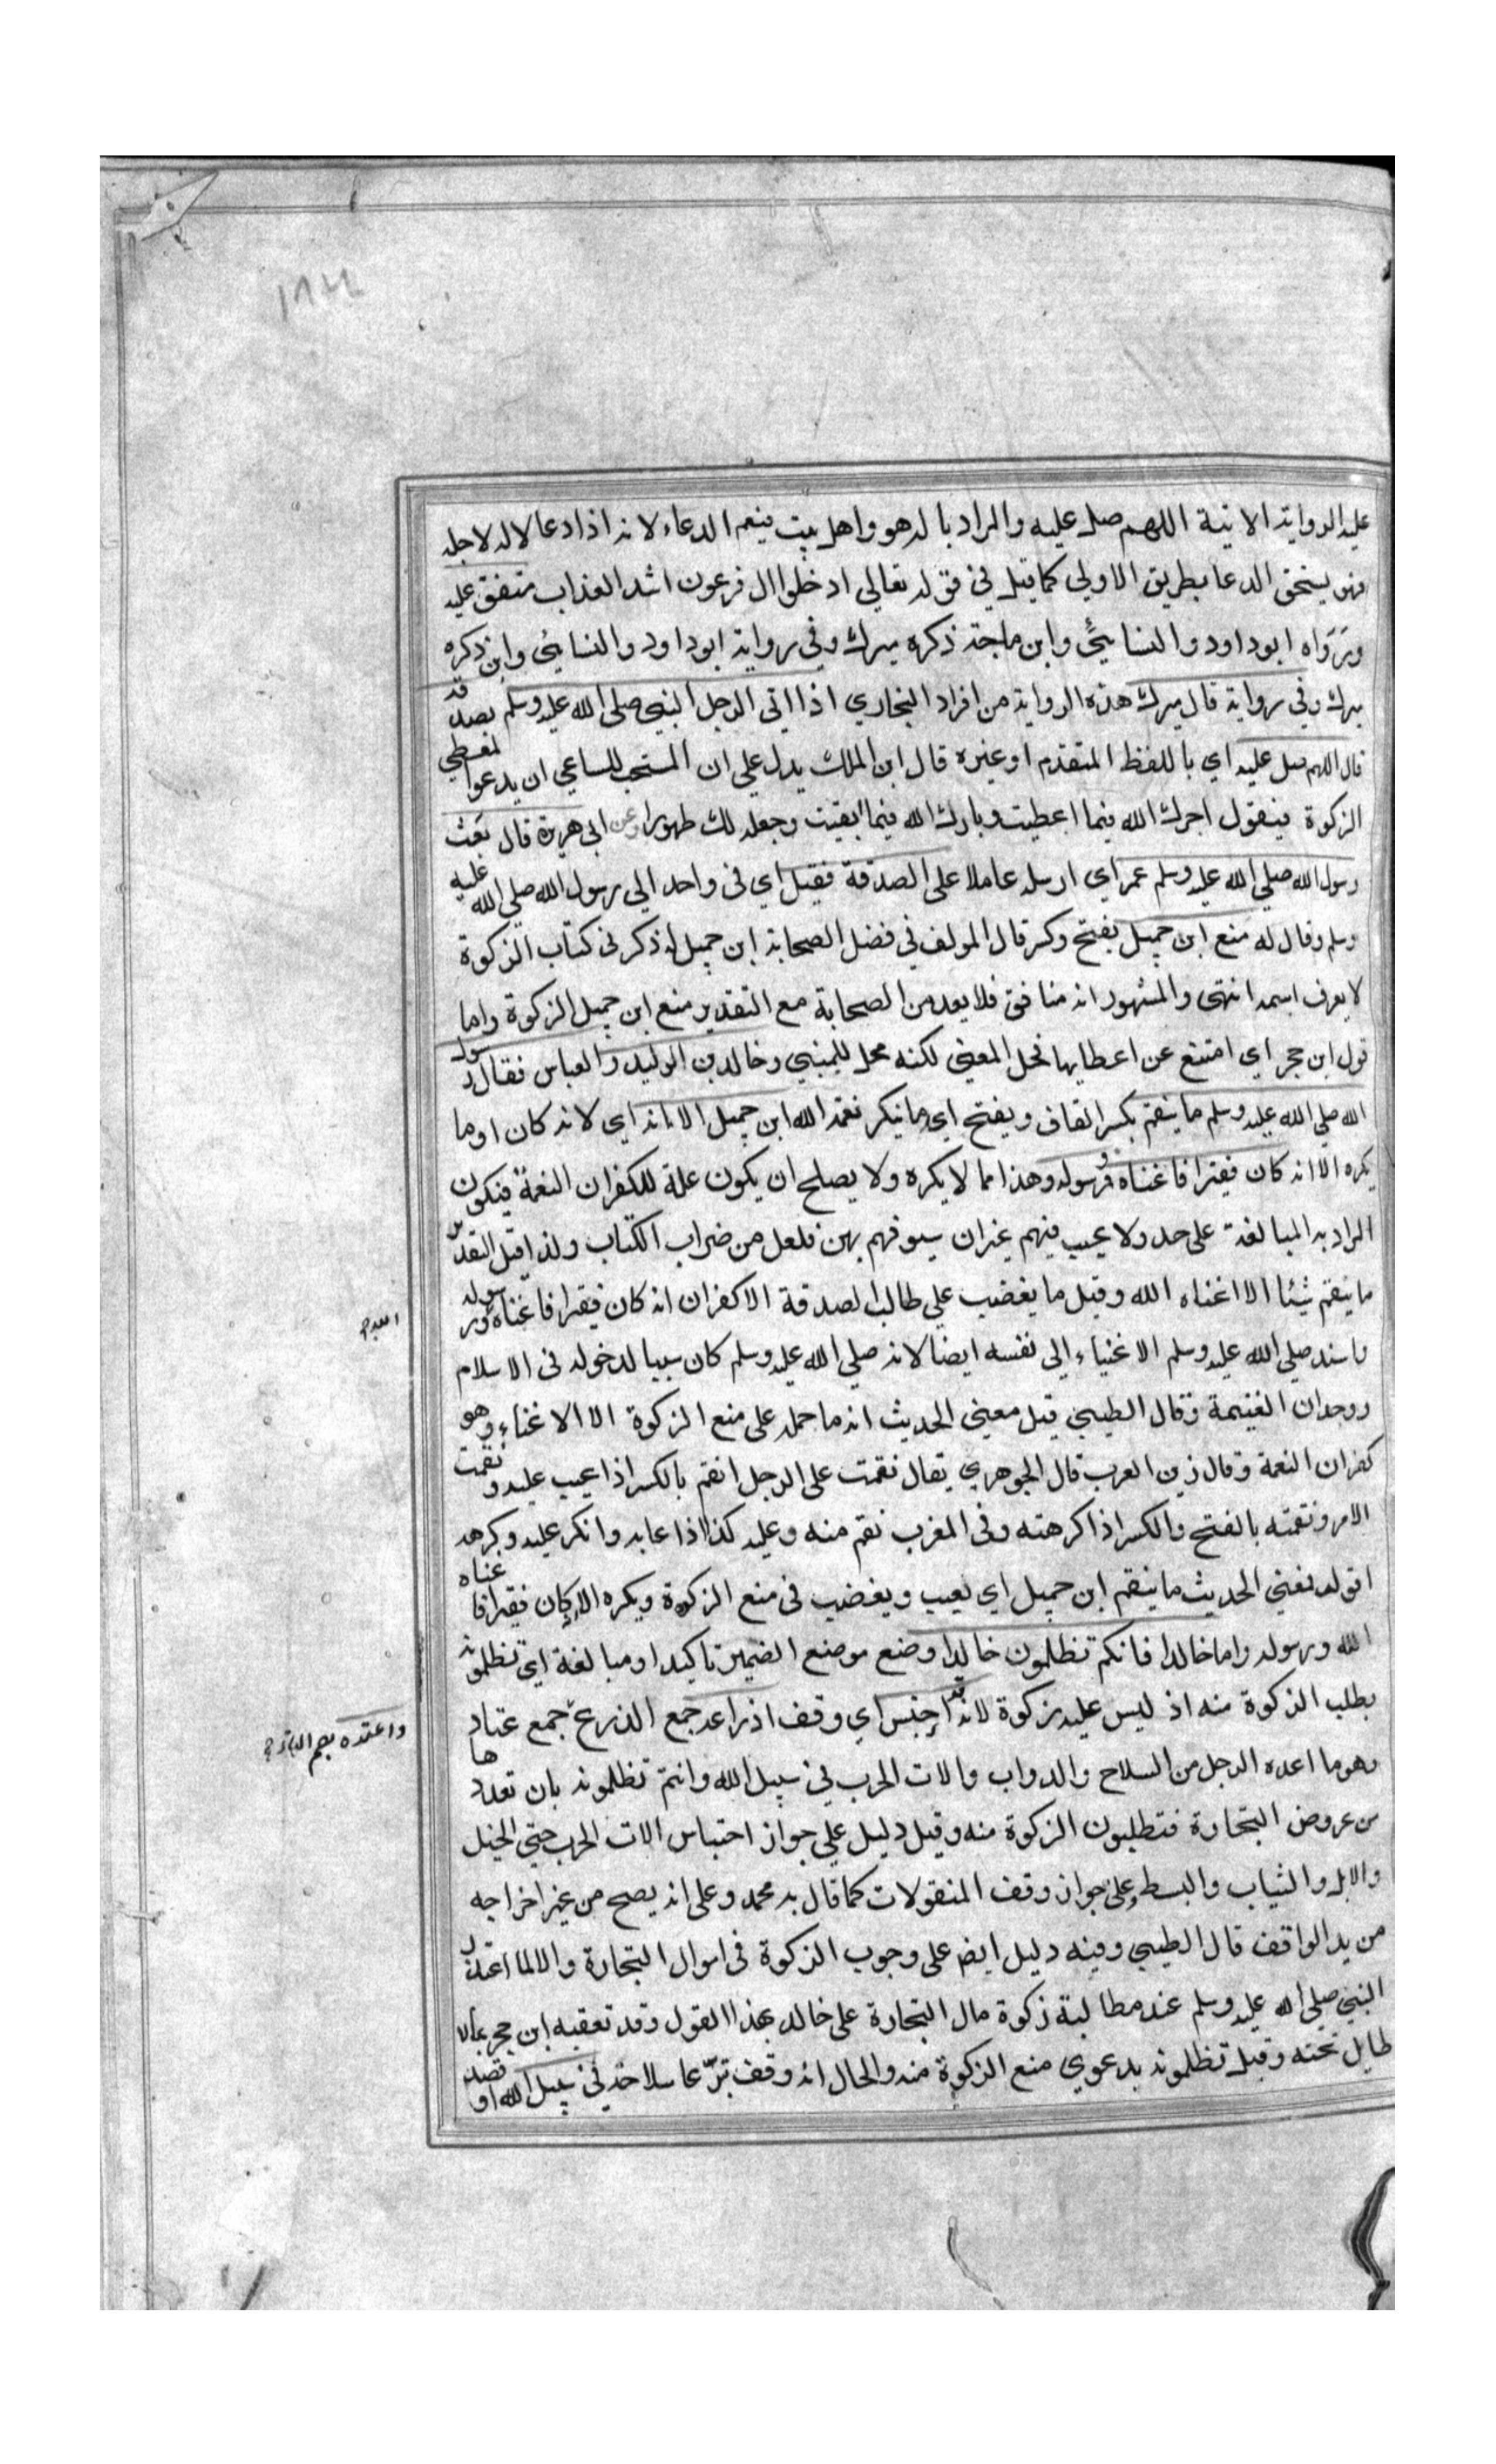 ١٨٢
عليه الرواية الاتية اللهم صل عليه والمراد باله هو واهل بيت فيعم الدعاء لانه اذا دعا لاله لاجله
فهو يستحق الدعا بطريق الاولي كما قيل في قوله تعالي ادخلوا ال فرعون اشد العذاب متفق عليه
ورَوَاه ابو داود والنسائي وابن ماجة ذكره ميرك وفي رواية ابو داود والنسائي وابن ذكره
ميرك وفي رواية قال ميرك هذه الرواية من افراد البخاري اذا اتي الرجل النبي صلي الله عليه وسلم بصدقة
قال اللهم صل عليه اي باللفظ المتقدم او غيره قال ابن الملك يدل علي ان المستحب للساعي ان يدعوا لمعطي
الزكوة فيقول اجرك الله فيما اعطيت وبارك الله فيما ابقيت وجعله لك طهورا وعن ابي هريرة قال بَعَث
رسول الله صلي الله عليه وسلم عمر اي ارسله عاملا علي الصدقة فقيل اي في واحد الي رسول الله صلي الله عليه
وسلم وقال له منع ابن جميل بفتح وكسر قال المولف في فضل الصحابة ابن جميل له ذكر في كتاب الزكوة
لا يعرف اسمه انتهي والمشهور انه منافق فلا يعد من الصحابة مع التقدير منع ابن جميل الزكوة واما
قول ابن حجر اي امتنع عن اعطايها فحل المعني لكنه محل للمبني وخالد بن الوليد والعباس فقال رسول
الله صلي الله عليه وسلم ما ينقم بكسر القاف ويفتح اي ما ينكر نعمة الله ابن جميل الا انه اي لانه كان او ما
يكره الا انه كان فقيرا فاغناه ورسوله وهذا مما لا يكره ولا يصلح ان يكون علة للكفران النعمة فيكون
المراد به المبالغة علي حد ولا عيب فيهم غير ان سيوفهم بهن فلعل من ضراب الكتاب ولذا قيل التقدير
ما ينقم شيئا الا اغناه الله وقيل ما يغضب علي طالب الصدقة الا كفران انه كان فقيرا فاغناه ورسوله
فاسند صلي الله عليه وسلم الاغنياء الي نفسه ايضا لانه صلي الله عليه وسلم كان سببا لدخوله في الاسلام
ووجدان الغنيمة وقال الطيبي قيل معني الحديث انه ما حمله علي منع الزكوة الا الاغناء وهو
كفران النعمة وقال زين العرب قال الجوهري يقال نقمت علي الرجل انقم بالكسر اذا عيب عليه ونقمت
الامر ونقمته بالفتح والكسر اذا كرهته وفي المغرب نقم منه وعليه كذا اذا عابه وانكر عليه وكرهه
اقوله فمعني الحديث ما ينقم ابن جميل اي يعيب ويغضب في منع الزكوة ويكره الا كان فقيرا فاغناه
الله ورسوله واما خالدا فانكم تظلمون خالدا وضع موضع الضمير تاكيدا ومبالغة اي تظلمونه
بطلب الزكوة منه اذ ليس عليه زكوة لانه قد احتبس اي وقف اذراعه جمع الذرع جمع عتاد
وهو ما اعده الرجل من السلاح والدواب والات الحرب في سبيل الله وانتم تظلمونه بان تعدوها
من عروض التجارة فتطلبون الزكوة منه وقيل دليل علي جواز احتباس الات الحرب حتي الخيل
والابل والثياب والبسط وعلي جواز وقف المنقولات كما قال به محمد وعلي انه يصح من غير اخراجه
من يد الواقف قال الطيبي وفيه دليل ايض علي وجوب الزكوة في اموال التجارة والا لما اعتذر
النبي صلي الله عليه وسلم عند مطالبة زكوة مال التجارة علي خالد بهذا القول وقد تعقبه ابن حجر بما لا
طايل تحته وقيل تظلمونه بدعوي منع الزكوة منه والحال انه وقف تبرّعا سلاحه في سبيل الله او قصد
واعتده بضم